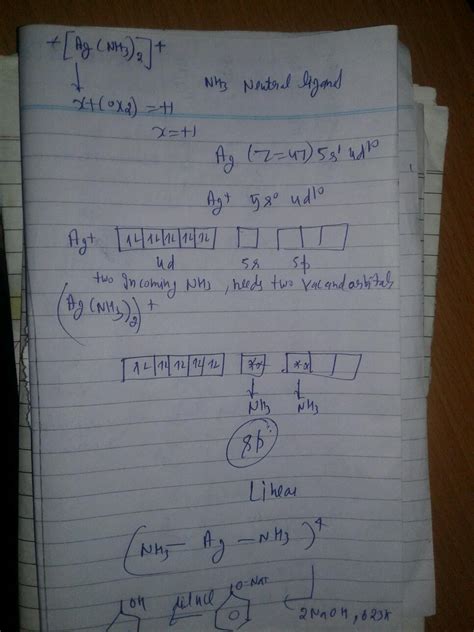 +[Ag(NH3)2]+
NH3 Neutral ligand
x+(0x2)=+1
x=+1
Ag (Z=47) 5s¹ 4d¹⁰
Ag+ 5s⁰ 4d¹⁰
Ag+ 1L 1L 1L 1L 1L
4d 5s 5p
two incoming NH3, needs two vacand orbitals
(Ag(NH3)2)+
1L 1L 1L 1L 1L xx xx
NH3 NH3
sp
Linear
(NH3 — Ag — NH3)+
OH dil HCl O-Na+
2NaOH, 623K